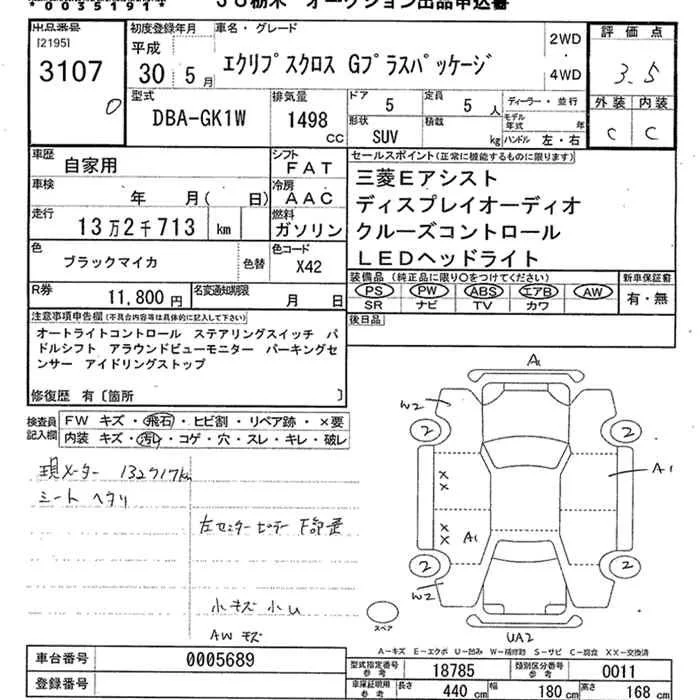 *0035191*
JU栃木 オークション出品申込書
出品番号
[2195]
3107
0
初度登録年月
平成
30 5月
車名・グレード
エクリプスクロス Gプラスパッケージ
2WD
・
4WD
評価点
3.5
外装 内装
C C
型式
DBA-GK1W
排気量
1498
CC
ドア
5
定員
5 人
形状
SUV
積載
kg
ディーラー・並行
モデル年式 年
ハンドル 左・右
車歴
自家用
シフト
FAT
車検
年 月( 日)
冷房
AAC
走行
13万2千713 km
燃料
ガソリン
色
ブラックマイカ
色替
色コード
X42
R券
11,800円
名変通知期限
月 日
セールスポイント(正常に機能するものに限ります)
三菱Eアシスト
ディスプレイオーディオ
クルーズコントロール
LEDヘッドライト
装備品 (純正品に限り○をつけてください)
PS PW ABS エアB AW
SR ナビ TV カワ
新車保証書
有・無
後日品
注意事項申告欄(不具合内容等は具体的に記入して下さい)
オートライトコントロール ステアリングスイッチ パ
ドルシフト アラウンドビューモニター パーキングセ
ンサー アイドリングストップ
修復歴 有〔箇所 〕
検査員
記入欄
FW キズ・飛石・ヒビ割・リペア跡・×要
内装 キズ・汚れ・コゲ・穴・スレ・キレ・破レ
現メーター 132717km
シート ヘタリ
左センターピラー 下部歪
小キズ 小U
AW キズ
A1
W2
2
2
A1
×
×
×
×
A1
2
2
W2
UA2
スペア
A-キズ E-エクボ U-凹み W-補修跡 S-サビ C-腐食 XX-交換済
車台番号
0005689
登録番号
型式指定番号
参考
18785
類別区分番号
参考
0011
車庫証明用
参考
長さ 440 cm
幅 180 cm
高さ 168 cm